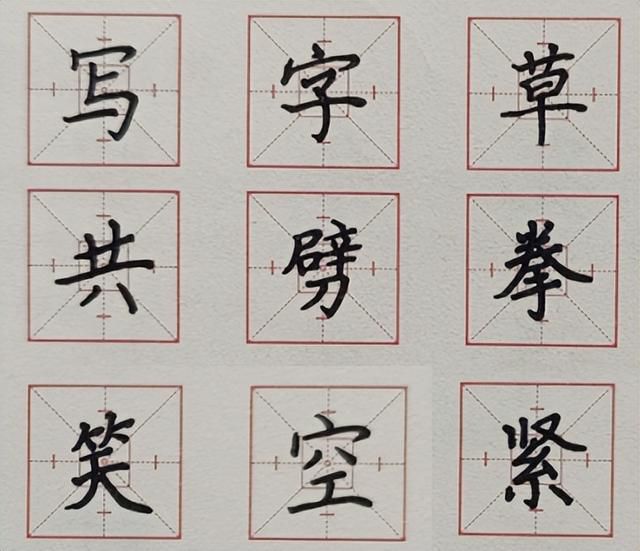 写字草
共劈拳
笑空紧